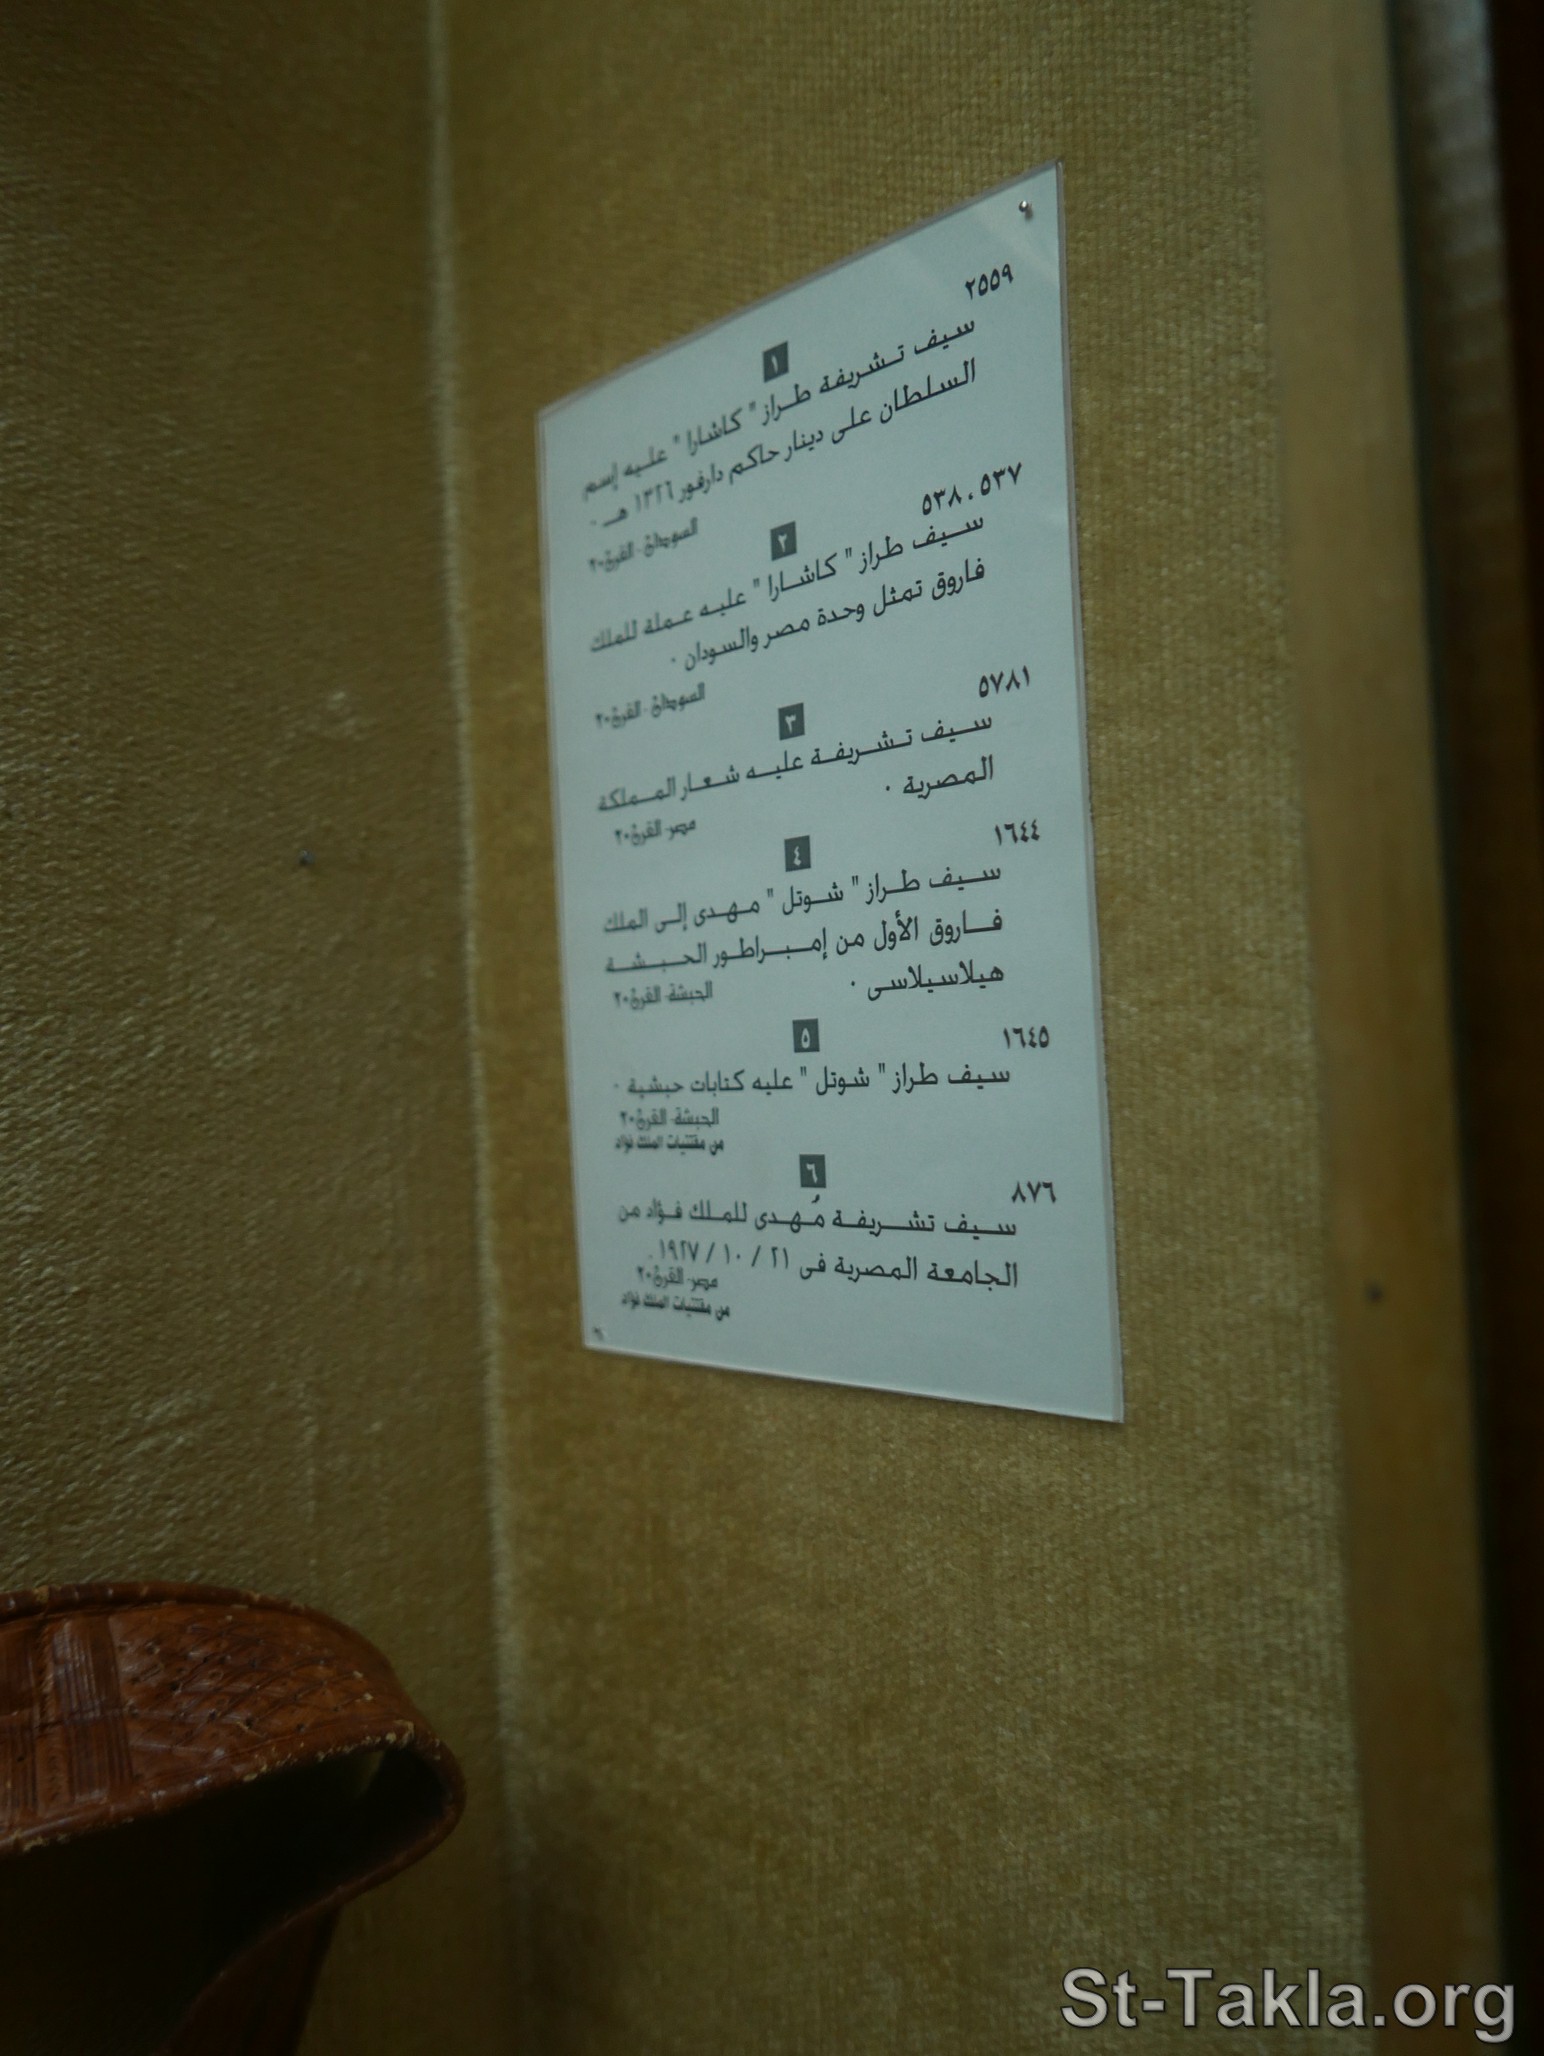 ١
٢٥٥٩
سيف تشريفة طراز " كاشارا " عليه إسم
السلطان على دينار حاكم دارفور ١٣٢٦ هـ .
السودان - القرن ٢٠
٢
٥٣٨ ، ٥٣٧
سيف طراز " كاشارا " عليه عملة للملك
فاروق تمثل وحدة مصر والسودان .
السودان - القرن ٢٠
٣
٥٧٨١
سيف تشريفة عليه شعار المملكة
المصرية .
مصر - القرن ٢٠
٤
١٦٤٤
سيف طراز " شوتل " مهدى إلى الملك
فاروق الأول من إمبراطور الحبشة
هيلاسيلاسى .
الحبشة - القرن ٢٠
٥
١٦٤٥
سيف طراز " شوتل " عليه كتابات حبشية .
الحبشة - القرن ٢٠
من مقتنيات الملك فؤاد
٦
٨٧٦
سيف تشريفة مُهدى للملك فؤاد من
الجامعة المصرية فى ٢١ / ١٠ / ١٩٢٧ .
مصر - القرن ٢٠
من مقتنيات الملك فؤاد
St-Takla.org